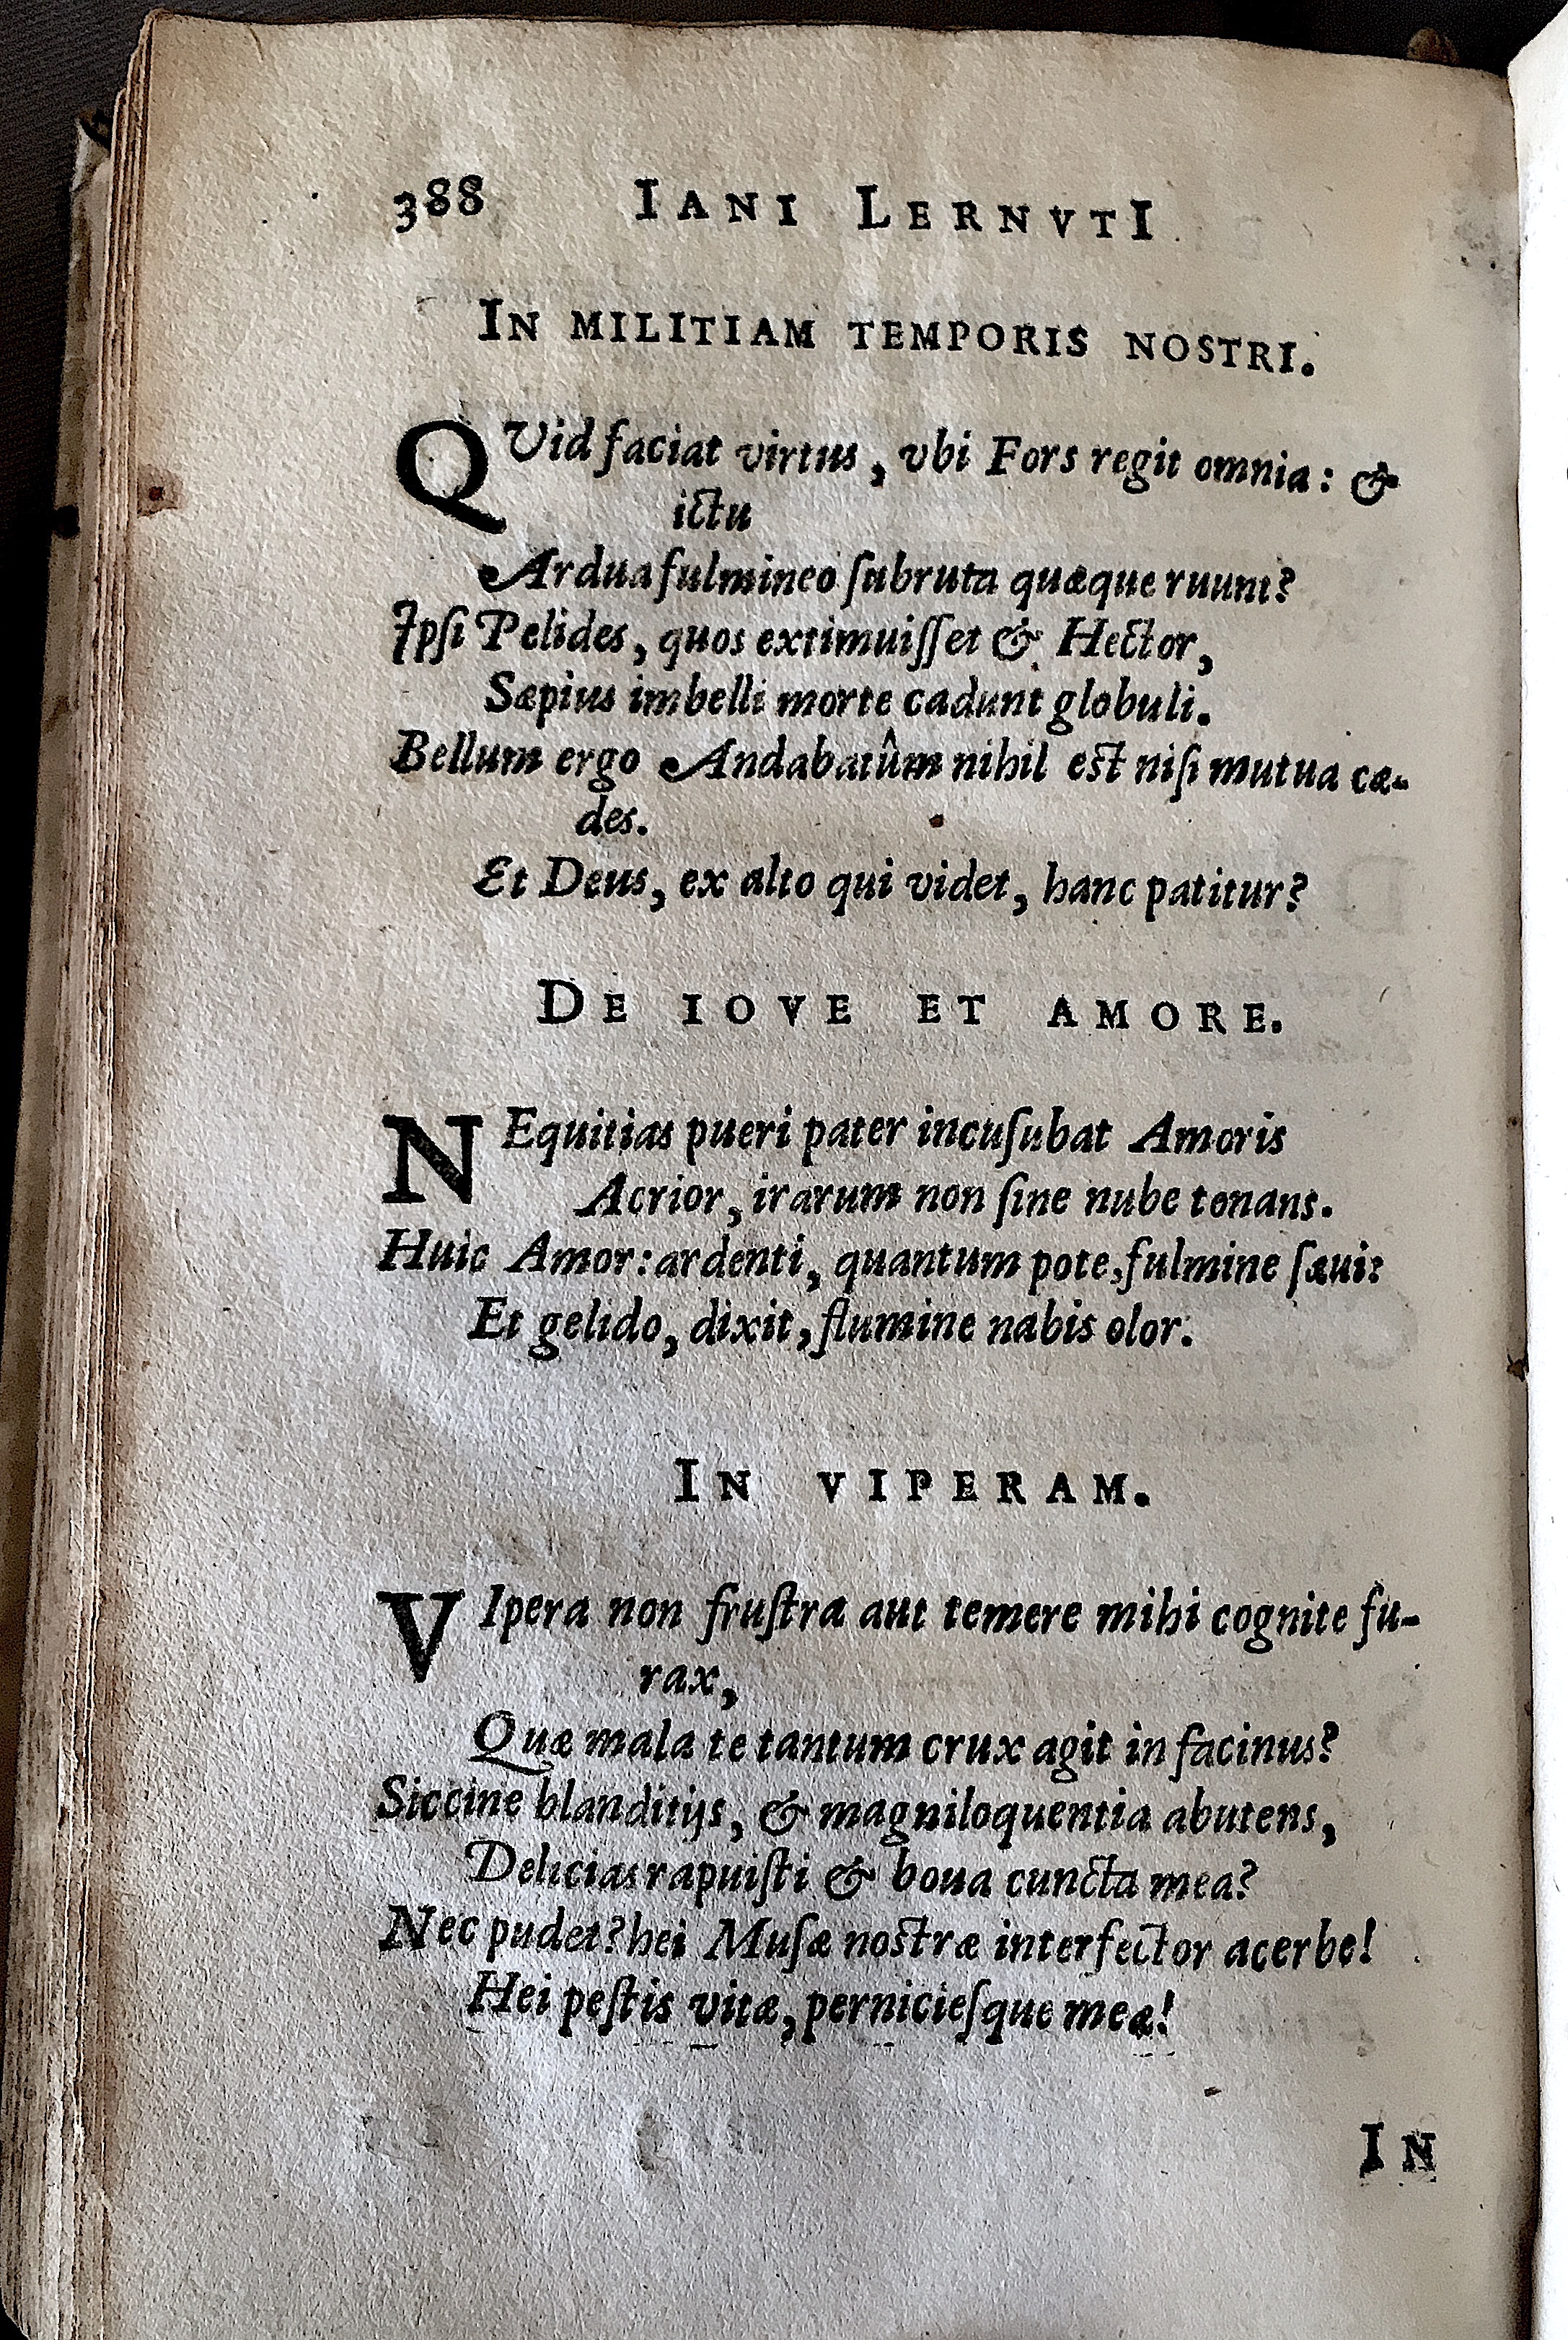 388 IANI LERNVTI
IN MILITIAM TEMPORIS NOSTRI.
QVid faciat virtus, vbi Fors regit omnia: &
ictu
Ardua fulmineo ſubruta quæque ruunt?
Ipſi Pelides, quos extimuiſſet & Hector,
Sæpius imbelli morte cadunt globuli.
Bellum ergo Andabatûm nihil est niſi mutua cæ-
des.
Et Deus, ex alto qui videt, hanc patitur?
DE IOVE ET AMORE.
NEquitias pueri pater incuſubat Amoris
Acrior, irarum non ſine nube tonans.
Huic Amor: ardenti, quantum pote, fulmine ſæui:
Et gelido, dixit, flumine nabis olor.
IN VIPERAM.
VIpera non fruſtra aut temere mihi cognite fu-
rax,
Quæ mala te tantum crux agit in facinus?
Siccine blanditijs, & magniloquentia abutens,
Delicias rapuiſti & boua cuncta mea?
Nec pudet? hei Muſæ nostræ interfector acerbe!
Hei peſtis vitæ, pernicieſque meæ!
IN